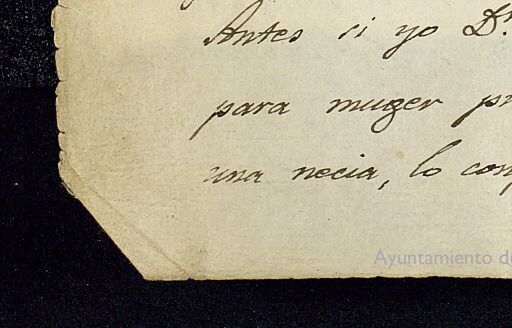 Antes si yo D.
para muger pr
una necia, lo con
Ayuntamiento de